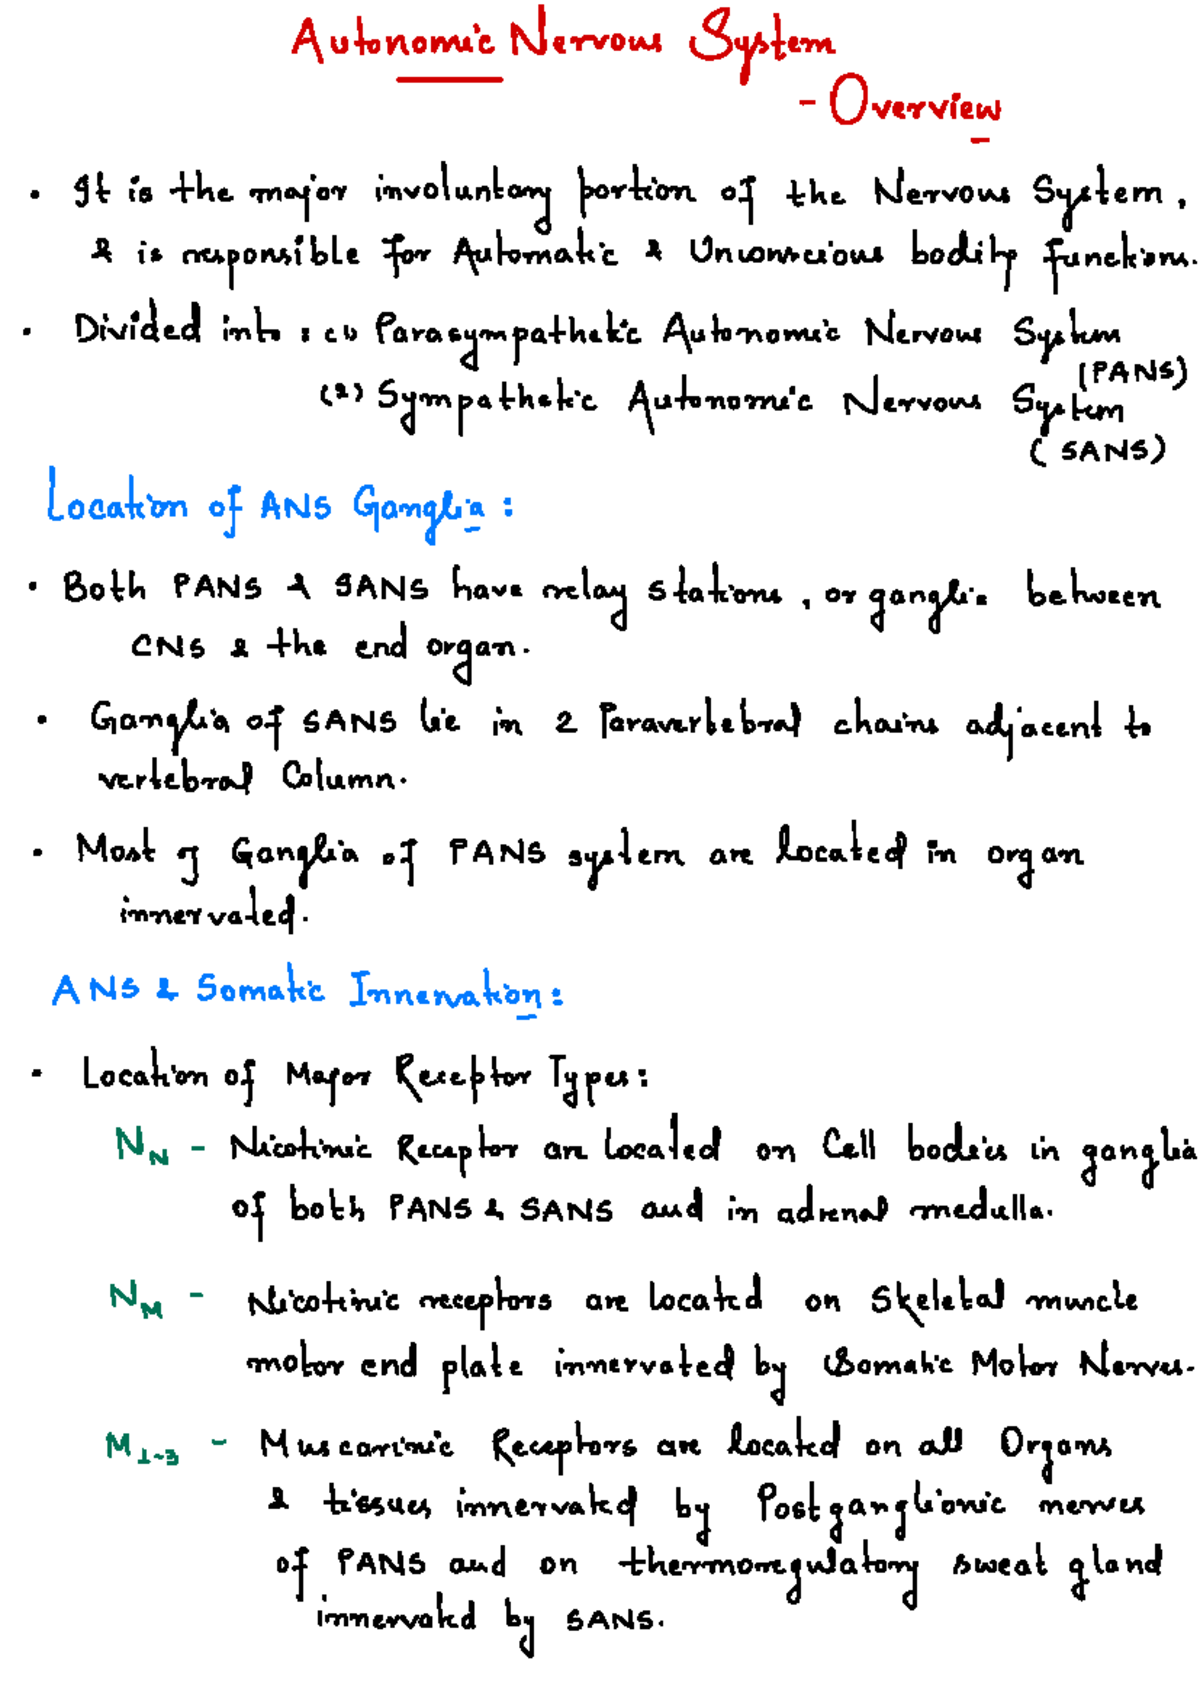 Autonomic Nervous System
- Overview
• It is the major involuntary portion of the Nervous System,
& is responsible for Automatic & Unconscious bodily functions.
• Divided into : (1) Parasympathetic Autonomic Nervous System
(PANS)
(2) Sympathetic Autonomic Nervous System
(SANS)
Location of ANS Ganglia :
• Both PANS & SANS have relay stations, or ganglia between
CNS & the end organ.
• Ganglia of SANS lie in 2 Paravertebral chains adjacent to
vertebral Column.
• Most of Ganglia of PANS system are located in organ
innervated.
ANS & Somatic Innervation :
• Location of Major Receptor Types :
NN - Nicotinic Receptor are located on Cell bodies in ganglia
of both PANS & SANS and in adrenal medulla.
NM - Nicotinic receptors are located on Skeletal muscle
motor end plate innervated by Somatic Motor Nerves.
M1-3 - Muscarinic Receptors are located on all Organs
& tissues innervated by Postganglionic nerves
of PANS and on thermoregulatory sweat gland
innervated by SANS.